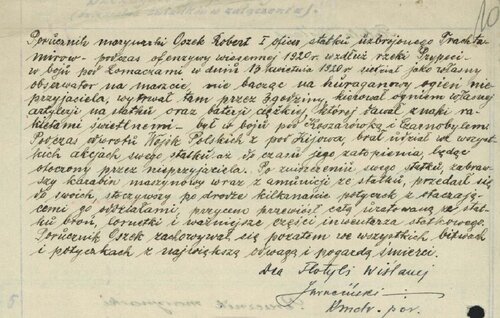 10
Porucznik marynarki Oszek Robert I oficer statku uzbrojonego Trachta-
mirow - podczas ofenzywy wiosennej 1920 r. wzdłuż rzeki Prypeci -
w boju pod Łomaczami w dniu 13 kwietnia 1920 r siedział jako własny
obserwator na maszcie nie bacząc na huraganowy ogień nie-
przyjaciela, wytrwał tam przez 3 godziny, kierował ogniem własnej
artylerji na statku oraz baterji ciężkiej, której dawał znaki ra-
kietami świetlnemi - był w boju pod Koszarówką i Czarnobylem.
Podczas odwrotu Wojsk Polskich z pod Kijowa, brał udział we wszyst-
kich akcjach swego statku aż do czasu jego zatopienia, będąc
otoczony przez nieprzyjaciela. Po zniszczeniu swego statku, zabraw-
szy karabin maszynowy wraz z amunicją ze statku, przedarł się
do swoich, stoczywszy po drodze kilkanaście potyczek z otaczają-
cemi go oddziałami przyczem przewiózł całą uratowaną ze stat-
ku broń, lornetki i ważniejsze części inwentarza statkowego.
Porucznik Oszek zachowywał się pozatem we wszystkich bitwach
i potyczkach z największą odwagą i pogardą śmierci.
Dca Flotyli Wiślanej
Kmdr. por.